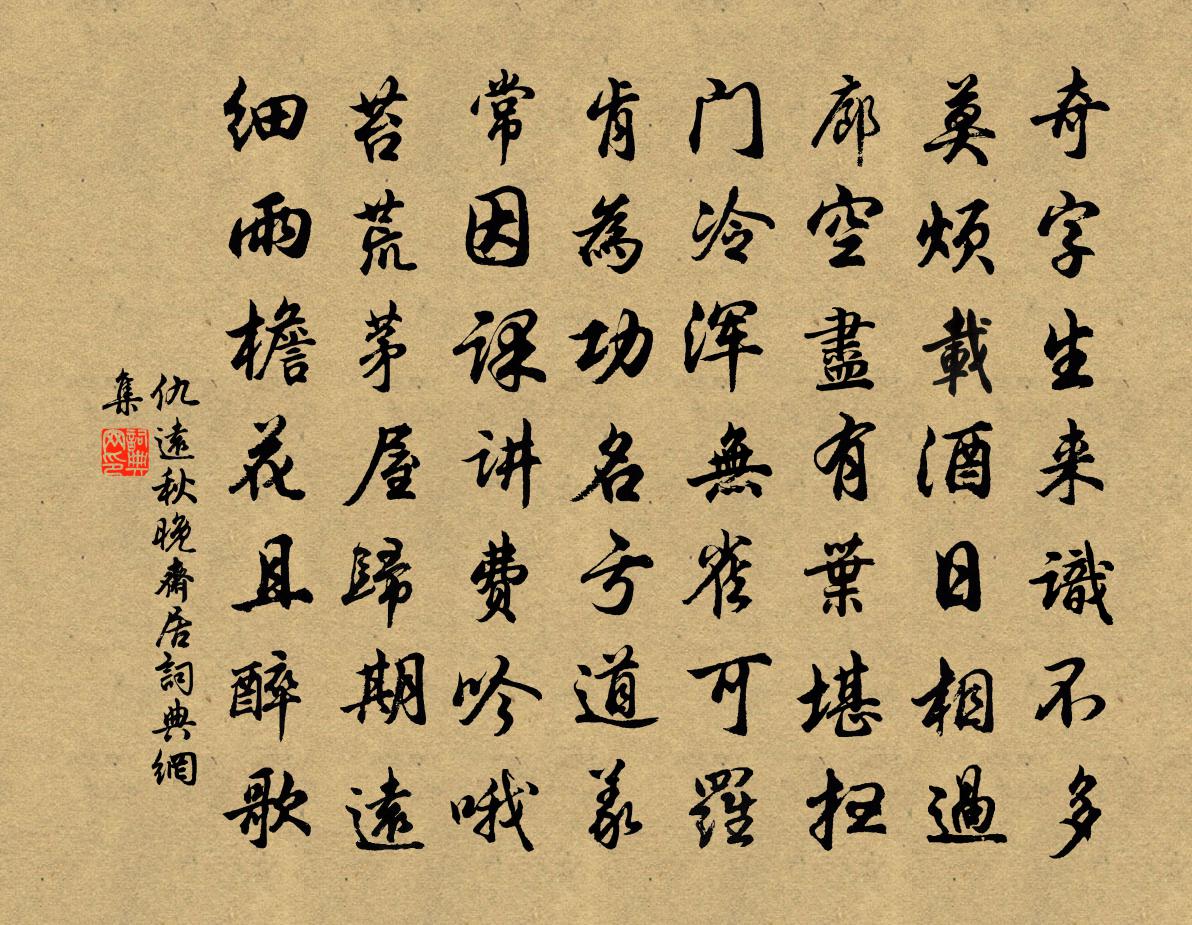 奇字生来識不多
莫煩載酒日相過
廊空盡有葉堪扫
门冷浑無雀可羅
肯為功名亏道義
常因课讲費吟哦
苔荒茅屋歸期遠
细雨檐花且醉歌
仇遠秋晚齋居詞典網
集
詞典网印